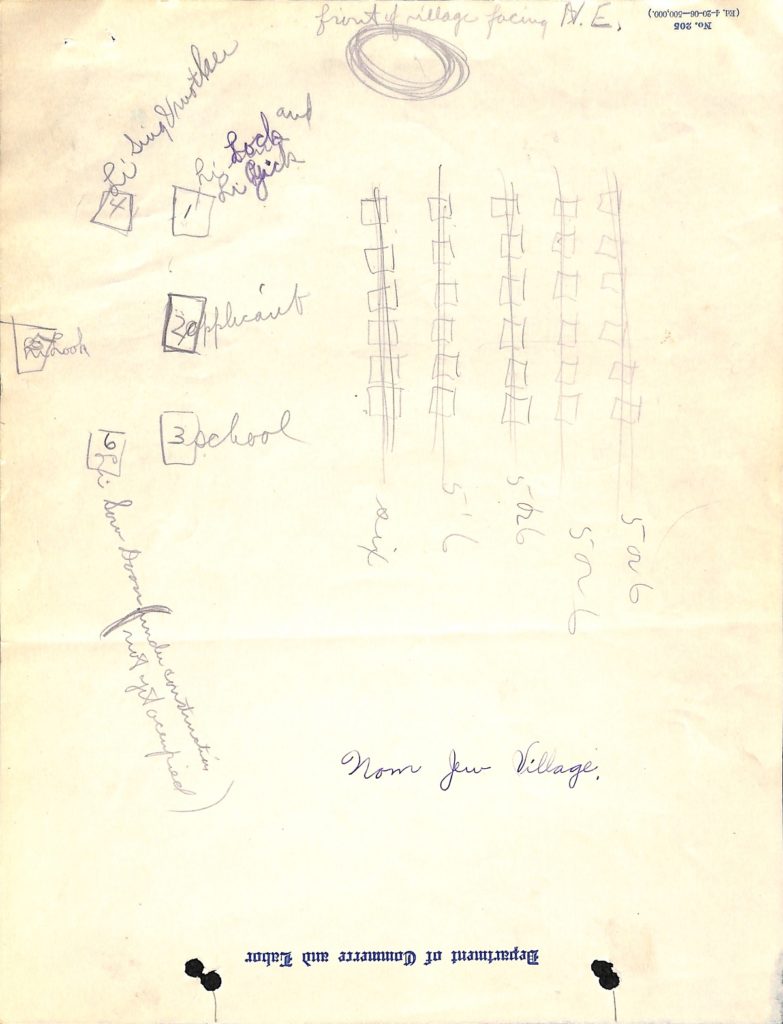 front of village facing N. E.
No. 205
(Ed. 4-20-06—500,000.)
4 Li Sing & mother
1 Li Lock and
Li Gick
2 applicant
5 Li Look
3 school
6 Li Sow Doon (under construction
not yet occupied)
six
5 6
5 or 6
5 or 6
5 or 6
Nom Jew Village.
Department of Commerce and Labor